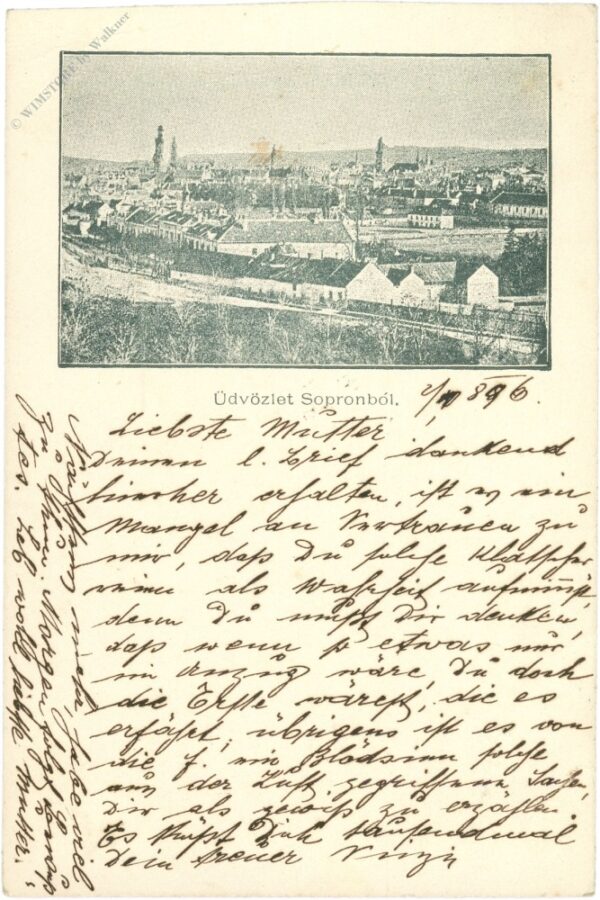 © WIMSTORE by Walkner
Üdvözlet Sopronból.
896.
Liebste Mutter
Deinen l. Brief dankend
hierher erhalten, ist es ein
Mangel an Vertrauen zu
mir, daß Du solche Klatsche
reien als Wahrheit aufnimst,
denn Du mußt Dir denken,
daß wenn so etwas nur
im Anzug wäre, Du doch
die Erste wärest, die es
erfährt, übrigens ist es von
die f. ein Blödsinn solche
aus der Luft gegriffene Sachen
Dir als gewiß zu erzählen.
Es küßt Dich tausendmal
Dein treuer
mehr, habe viel
zu thun. Morgen folgt
Leb wohl liebste Mutter.